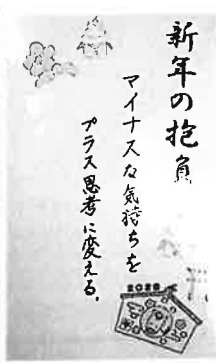 新年の抱負
マイナスな気持ちを
プラス思考に変える。